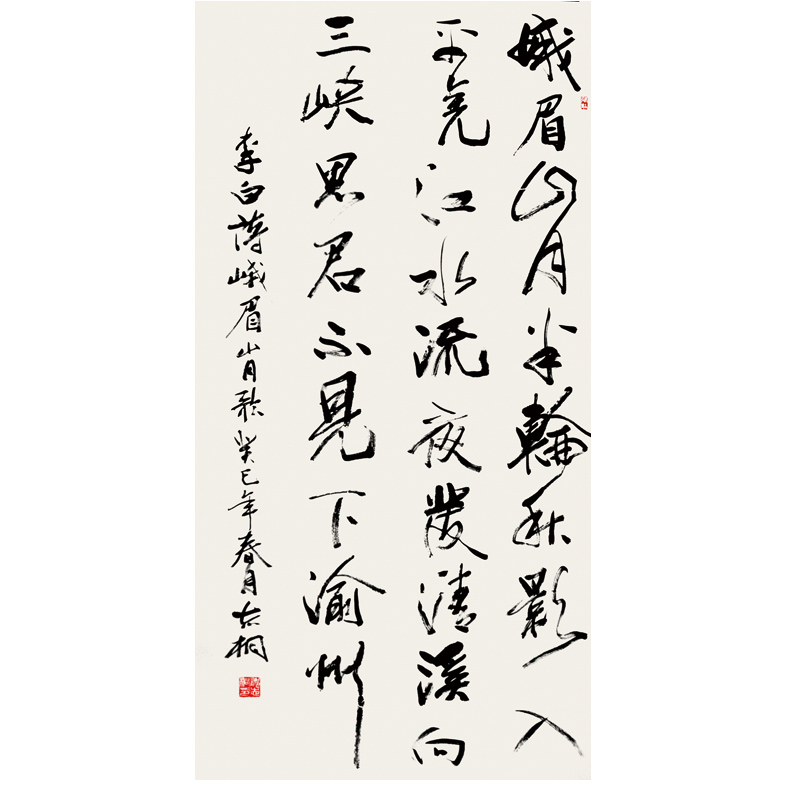 娥眉山月半輪秋影入
平羌江水流夜發清溪向
三峽思君不見下渝州
李白詩峨眉山月歌癸巳年春月桐